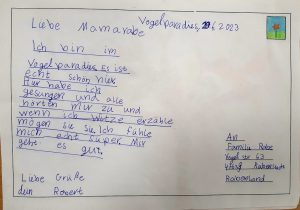 Vogelparadies, 20.6.2023
Liebe Mamarabe
Ich bin im
Vogelparadies Es ist
echt schön hier.
Hier habe ich
gesungen und alle
hörten mir zu und
wenn ich Witze erzähle
mögen sie sie Ich fühle
mich echt super Mir
geht es gut.
Liebe Grüße
dein Robert
An
Familie Rabe
Vogel str 63
Rabenland